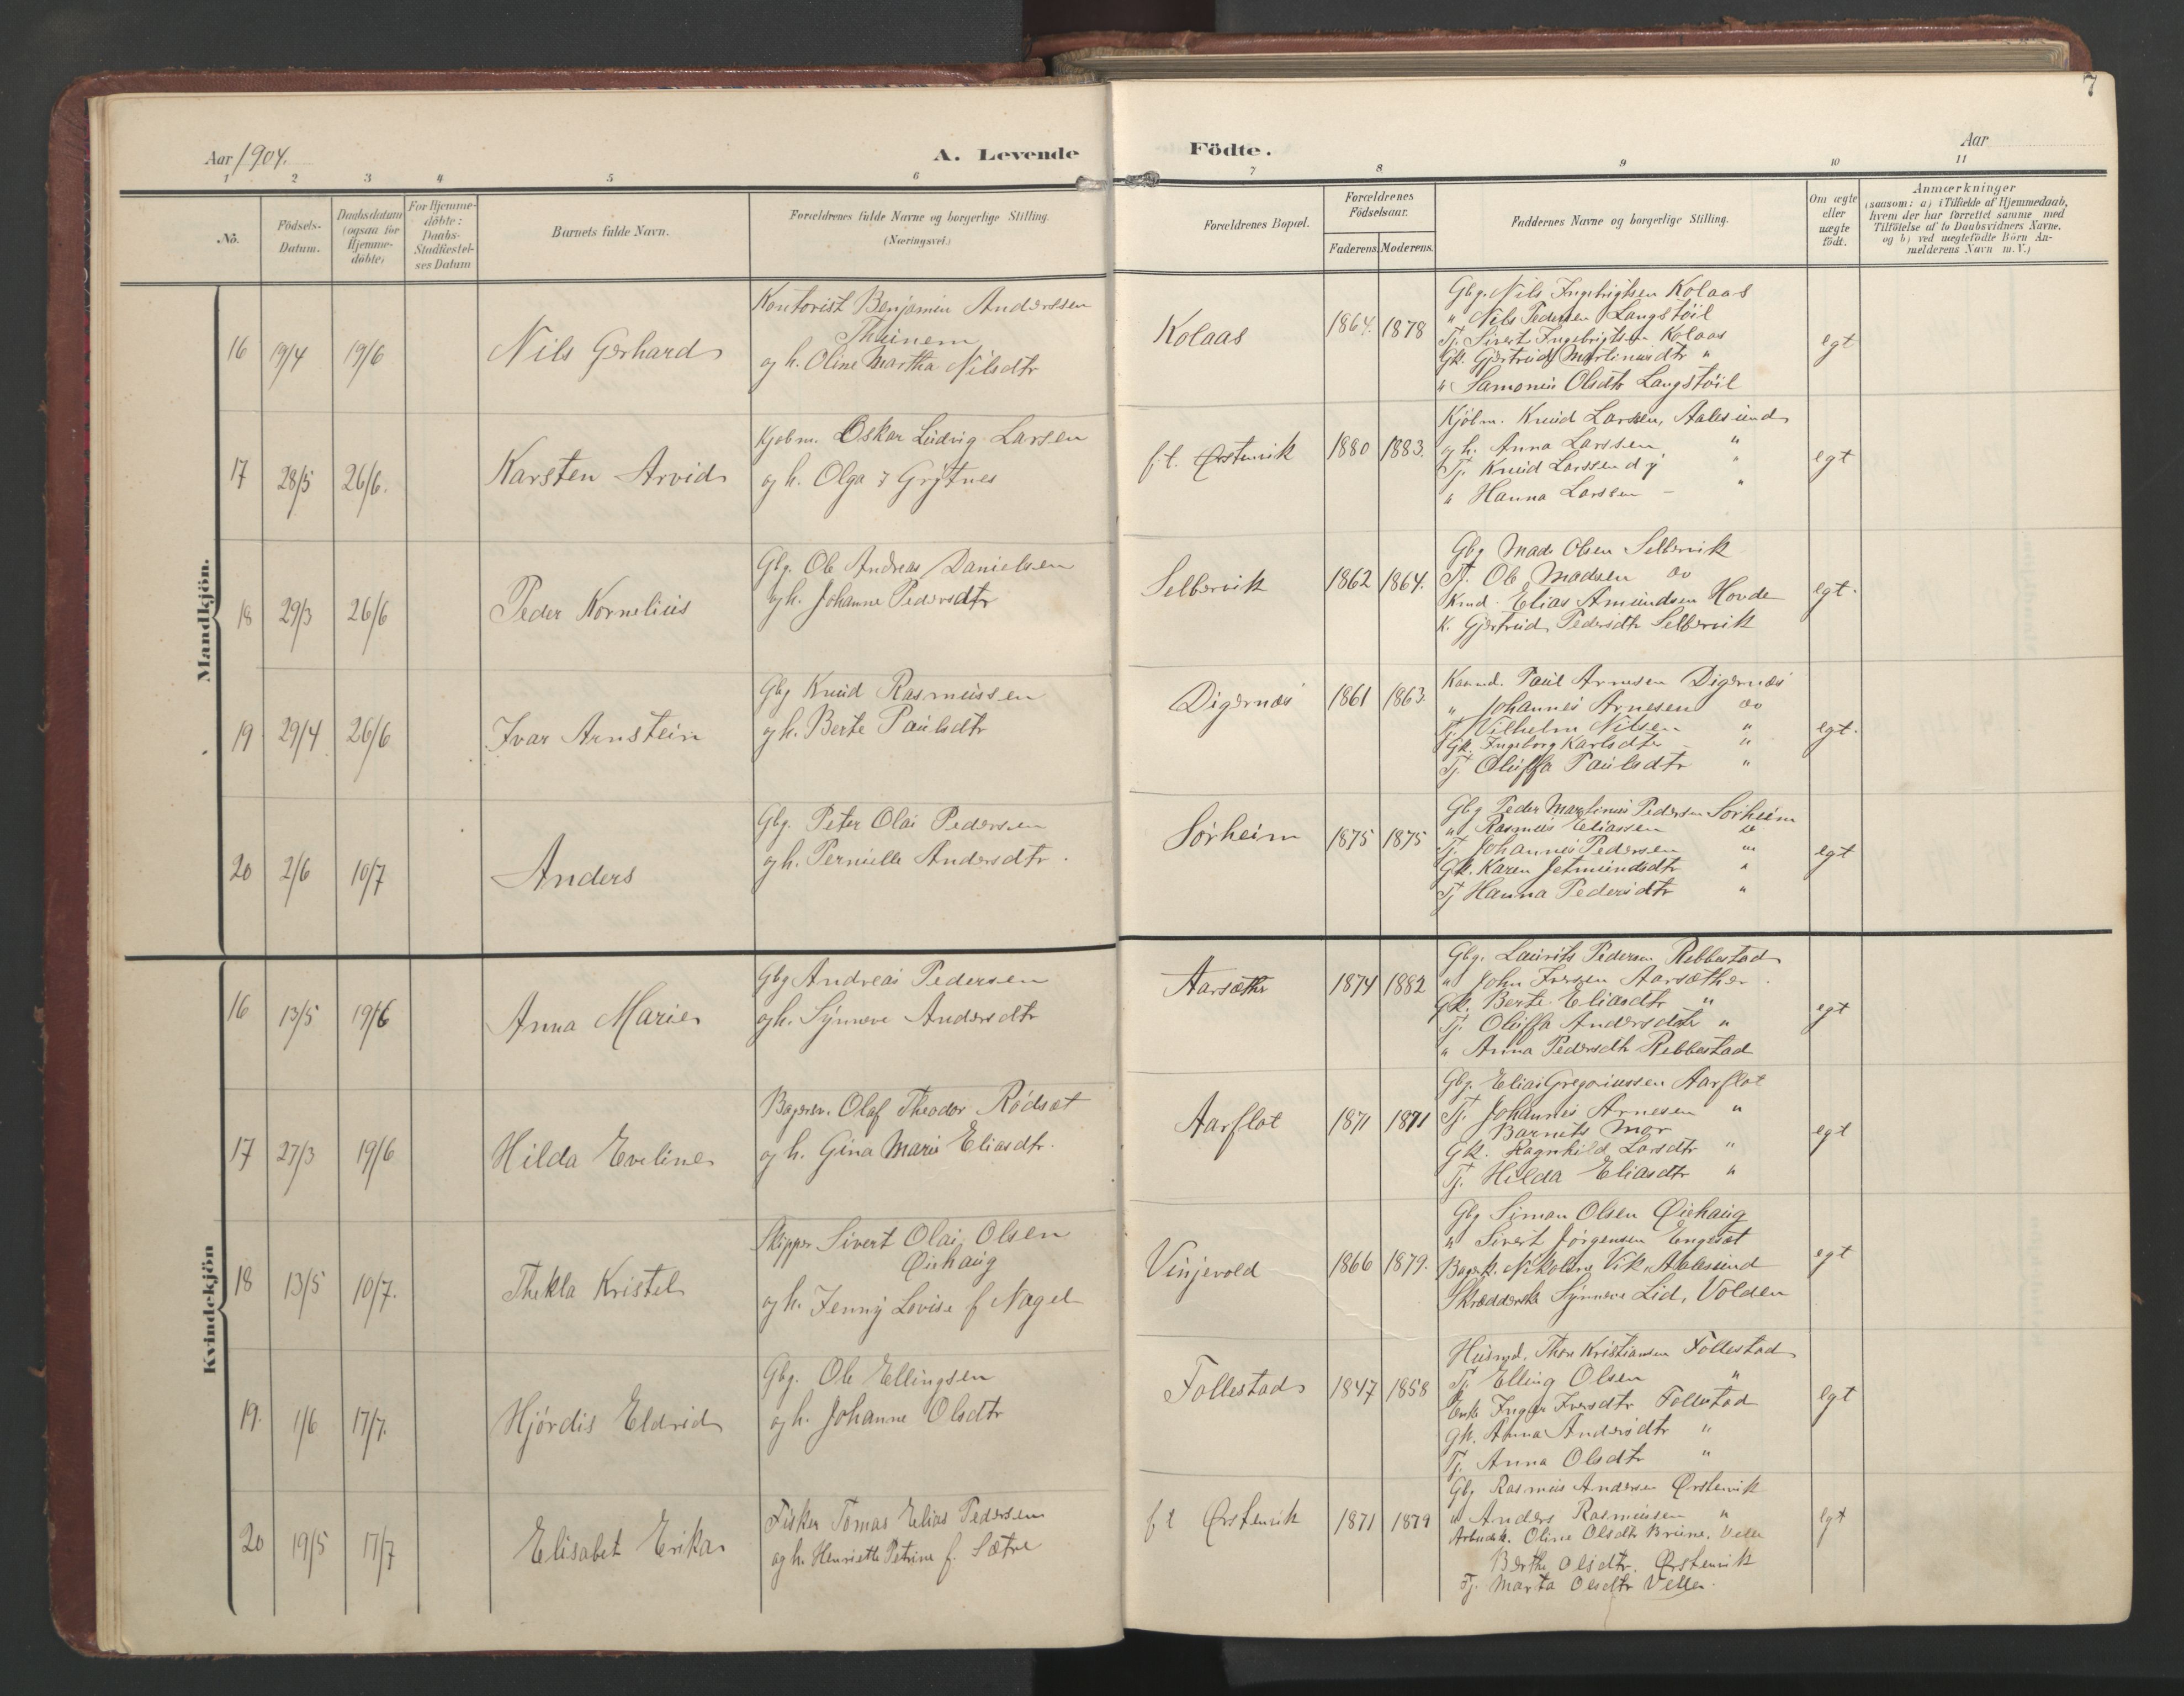 7
Aar 1904.
A. Levende Födte.
Aar
1 2 3 4 5 6 7 8 9 10 11
No.
Födsels-Datum.
Daabsdatum (ogsaa for Hjemme-döbte)
For Hjemme-döbte: Daabs-Stadfæstel-ses Datum
Barnets fulde Navn.
Forældrenes fulde Navne og borgerlige Stilling.
(Næringsvei.)
Forældrenes Bopæl.
Forældrenes Födselsaar.
Faderens. Moderens.
Faddernes Navne og borgerlige Stilling.
Om ægte eller uægte födt.
Anmærkninger
(saasom: a) i Tilfælde af Hjemmedaab,
hvem der har forrettet samme med
Tilföielse af to Daabsvidners Navne,
og b) ved uægtefödte Börn An-
melderens Navn m.V.)
Mandkjön.
16 19/4 19/6 Nils Gerhard
Kontorist Benjamin Anderssen
Thuinem
og h. Oline Martha Nilsdtr
Kolaas 1864. 1878
Gbg. Nils Ingebrigtsen Kolaas
" Nils Pedersen Langstöil
Tj. Sivert Ingebrigtsen Kolaas
Gk. Gjertrud Martinusdtr "
" Samone Olsdtr Langstöil
egt
17 28/5 26/6. Karsten Arvid
Kjøbm. Oskar Ludvig Larsen
og h. Olga f Grytnes
f.t. Ørstenvik 1880 1883.
Kjöbm. Knud Larssen, Aalesund
og h. Anna Larssen, "
Tj. Knud Larssen d y "
" Hanna Larssen - "
egt
18 29/3 26/6 Peder Kornelius
Gbg. Ole Andreas Danielsen
og h. Johanne Pedersdtr
Selbervik 1862 1864.
Gbg Mads Olsen Selbervik
Tj. Ole Madsen do
Kmd. Elias Amundsen Hovde
K. Gjertrud Pedersdtr Selbervik
egt.
19 29/4 26/6 Ivar Arnstein
Gbg Knud Rasmussen
og h. Berte Paulsdtr
Digernæs 1861 1863.
Kaarmd. Paul Arnesen Digernæs
" Johannes Arnesen do
Tj. Vilhelm Nilsen "
Gk. Ingeborg Karlsdtr "
Tj. Oluffa Paulsdtr "
egt.
20 2/6 10/7 Anders
Gbg. Peter Olai Pedersen
og h. Pernille Andersdtr.
Sørheim 1875 1875
Gbg Peder Martinus Pedersen Sørheim
" Rasmus Eliassen "
Tj. Johannes Pedersen "
Gk. Karen Jetmundsdtr "
Tj Hanna Pedersdtr "
egt
Kvindekjön
16 13/5 19/6 Anna Marie
Gbg Andreas Pedersen
og h. Synneve Andersdtr
Aarsæther 1874 1882
Gbg. Laurits Pedersen Rebbestad
" John Iversen Aarsæther.
Gk. Berte Eliasdtr "
Tj. Oluffa Andersdtr "
" Anna Pedersdtr Rebbestad
egt
17 27/3 19/6 Hilda Eveline
Bagersv. Olaf Theodor Rødsæt
og h. Gina Marie Eliasdtr.
Aarflot 1871 1871
Gbg. Elias Gregoriussen Aarflot
Tj. Johannes Arnesen "
Barnets Mor
Gk. Ragnhild Larsdtr "
Tj. Hilda Eliasdtr "
egt
18 13/5 10/7. Thekla Kristel
Skipper Sivert Olai Olsen
Øiehaug
og h. Jenny Lovise f Nagel
Vinjevold 1866 1879.
Gbg Simon Olsen Øiehaug
" Sivert Jørgensen Engeset
Bagerk. Nikoline Vik, Aalesund
Skrædderske Synneve Lid, Volden
egt
19. 1/6 17/7. Hjördis Eldrid
Gbg. Ole Ellingsen
og h. Johanne Olsdtr
Follestad 1847 1858
Husmd. Thore Kristiansen Follestad
Tj. Elling Olsen "
Enke Inger Iversdtr Follestad
Gk. Anna Andersdtr "
Tj. Anna Olsdtr "
egt
20 19/5 17/7 Elisabet Erika
Fisker Tomas Elias Pedersen
og h. Henriette Petrine f. Sætre
f t Ørstenvik 1871 1879
Gbg Rasmus Andersen Ørstenvik
" Anders Rasmussen "
Arbeidsk. Oline Olsdtr Brune, Velle
Berthe Olsdtr. Ørstenvik
Tj. Marta Olsdtr Velle.
egt